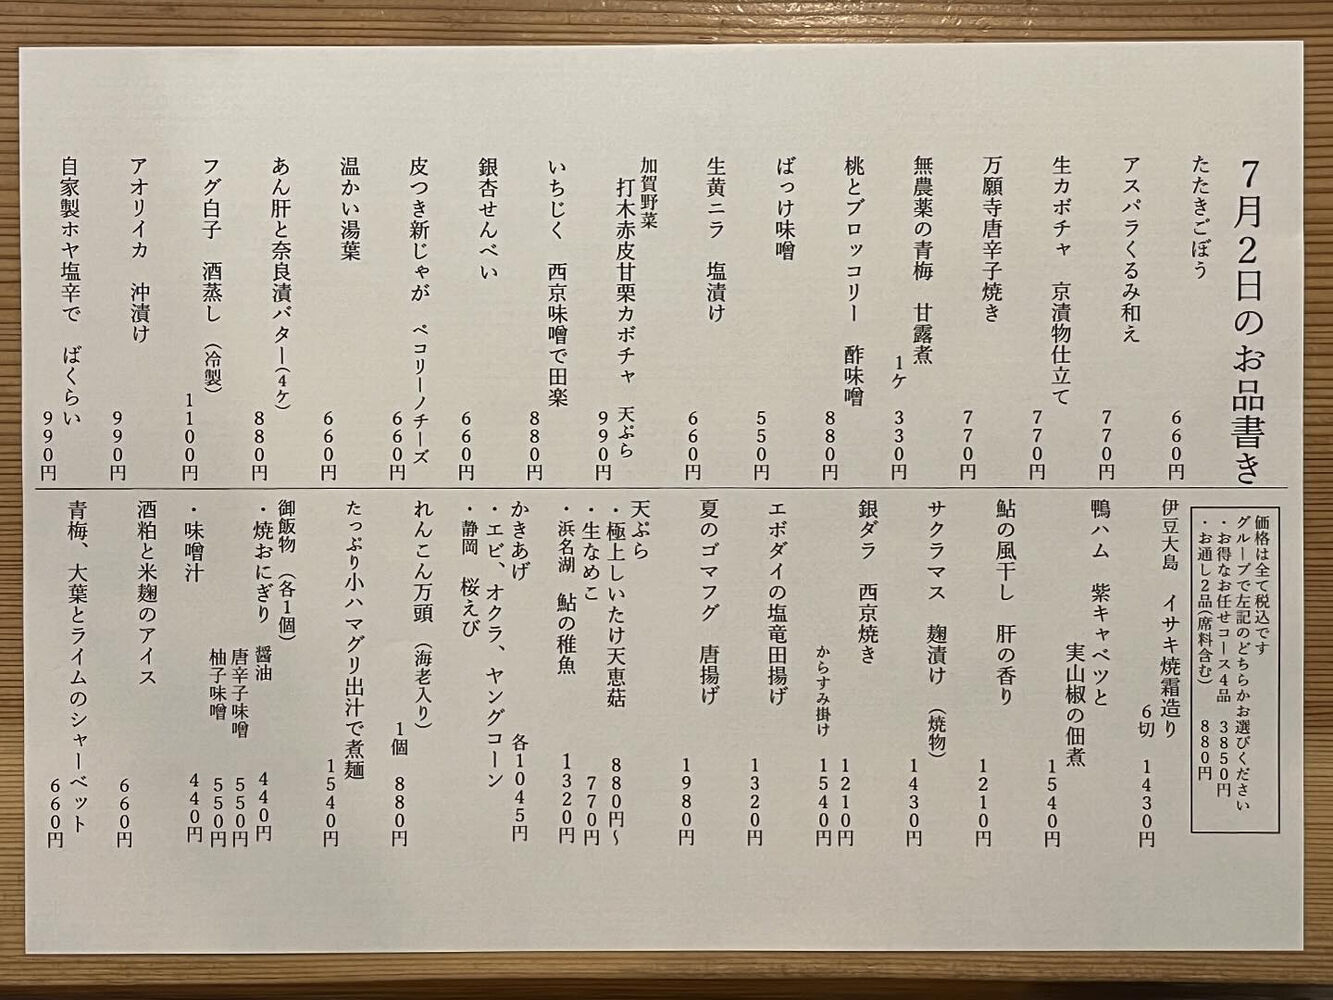 7月2日のお品書き
たたきごぼう
660円
アスパラくるみ和え
770円
生カボチャ 京漬物仕立て
770円
万願寺唐辛子焼き
770円
無農薬の青梅 甘露煮
1ケ 330円
桃とブロッコリー 酢味噌
880円
ばっけ味噌
550円
生黄ニラ 塩漬け
660円
加賀野菜
打木赤皮甘栗カボチャ 天ぷら
990円
いちじく 西京味噌で田楽
880円
銀杏せんべい
660円
皮つき新じゃが ペコリーノチーズ
660円
温かい湯葉
660円
あん肝と奈良漬バター(4ケ)
880円
フグ白子 酒蒸し（冷製）
1100円
アオリイカ 沖漬け
990円
自家製ホヤ塩辛で ばくらい
990円
価格は全て税込です
グループで左記のどちらかお選びください
・お得なお任せコース4品 3850円
・お通し2品(席料含む) 880円
伊豆大島 イサキ焼霜造り
6切 1430円
鴨ハム 紫キャベツと
実山椒の佃煮
1540円
鮎の風干し 肝の香り
1210円
サクラマス 麹漬け（焼物）
1430円
銀ダラ 西京焼き
1210円
からすみ掛け 1540円
エボダイの塩竜田揚げ
1320円
夏のゴマフグ 唐揚げ
1980円
天ぷら
・極上しいたけ天恵菇 880円～
・生なめこ 770円
・浜名湖 鮎の稚魚 1320円
かきあげ 各1045円
・エビ、オクラ、ヤングコーン
・静岡 桜えび
れんこん万頭（海老入り）
1個 880円
たっぷり小ハマグリ出汁で煮麺
1540円
御飯物（各1個）
・焼おにぎり 醤油 440円
唐辛子味噌 550円
柚子味噌 550円
・味噌汁 440円
酒粕と米麹のアイス
660円
青梅、大葉とライムのシャーベット
660円